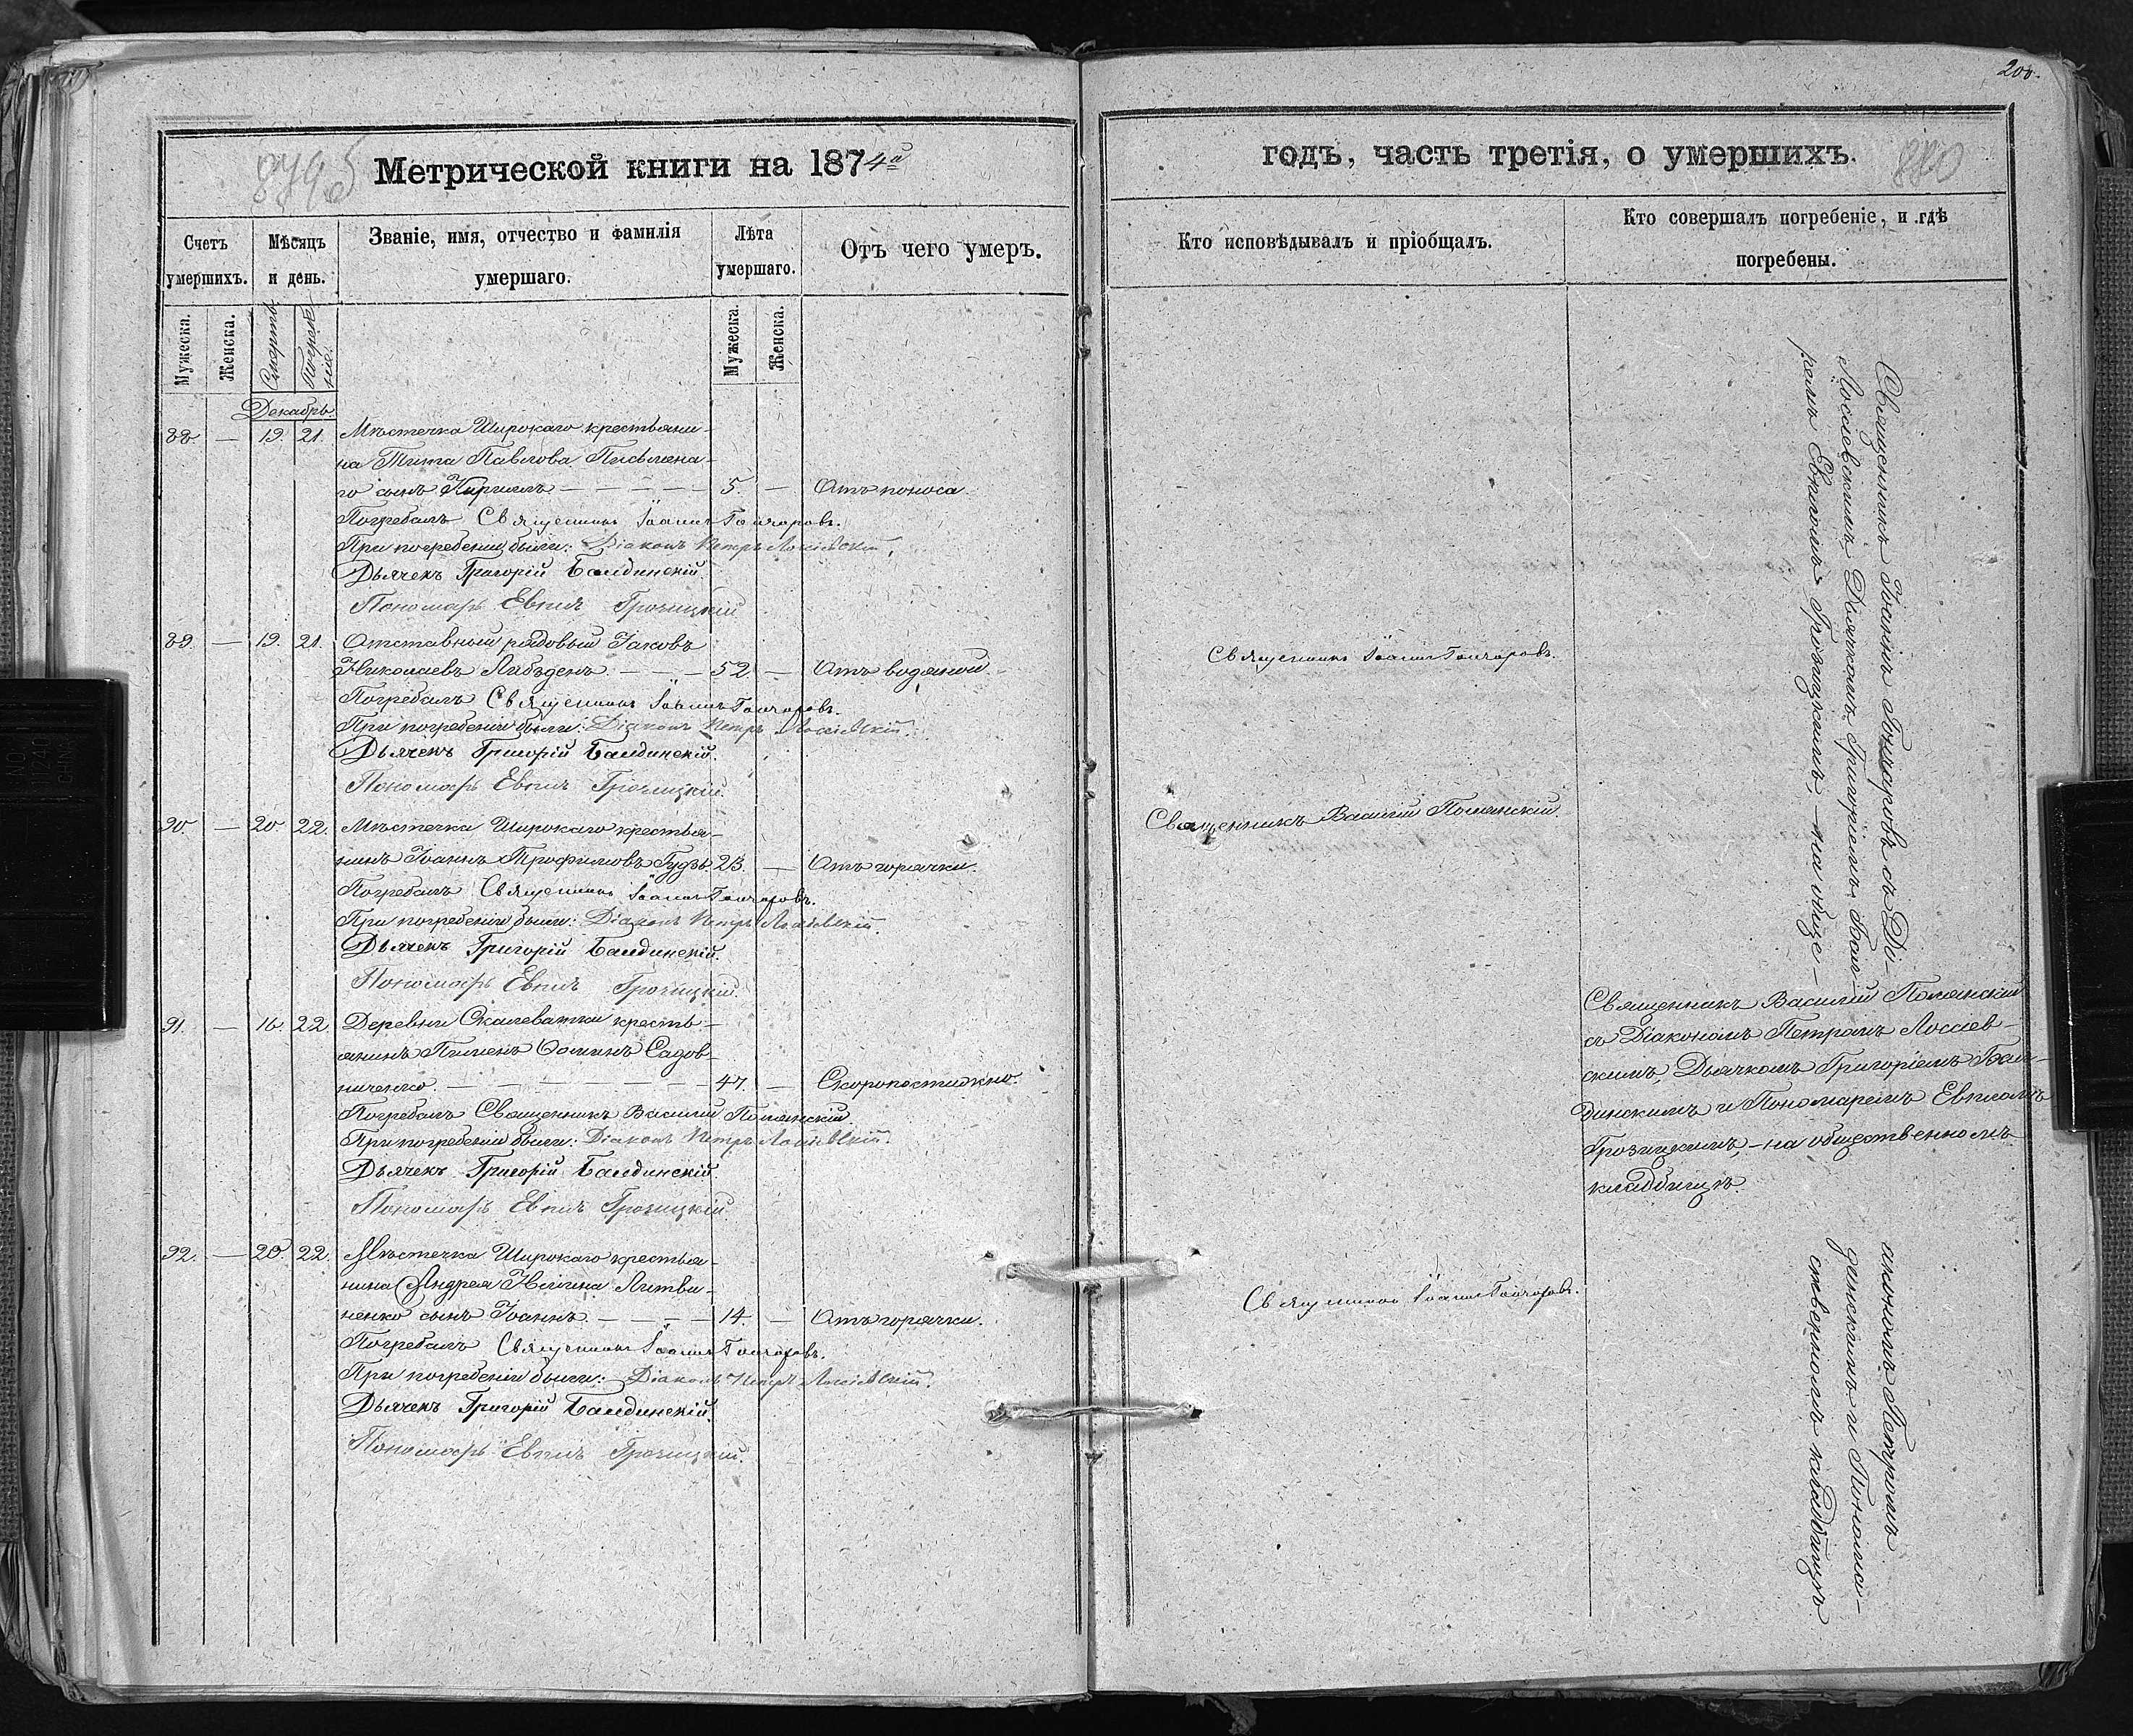 8795
Метрической книги на 1874й
Счетъ
умершихъ.
Мѣсяцъ
и день.
Званіе, имя, отчество и фамилія
умершаго.
Лѣта
умершаго.
Отъ чего умеръ.
Мужеска.
Женска.
Смерти
Погребе-
нія.
Мужеска.
Женска.
Декабрь.
88. — 19. 21. Мѣстечка Широкаго крестьяни-
на Тита Павлова Письмена-
го сынъ Кириллъ — — — — 5. — Отъ поноса.
Погребалъ Священникъ Іоаннъ Гончаровъ.
При погребеніи были: Діаконъ Петръ Лоссіевскій.
Дьячекъ Григорій Балдинскій.
Пономарь Евплъ Грозицкій
89. — 19. 21. Отставный рядовый Іаковъ
Николаевъ Лебъденъ — — — 52 — Отъ водяной.
Погребалъ Священникъ Іоаннъ Гончаровъ.
При погребеніи были: Діаконъ Петръ Лоссіевскій.
Дьячекъ Григорій Балдинскій.
Пономарь Евплъ Грозицкій.
90. — 20 22. Мѣстечка Широкаго крестья-
нинъ Іоаннъ Трофимовъ Гудзь. 23. — Отъ горячки.
Погребалъ Священникъ Іоаннъ Гончаровъ.
При погребеніи были: Діаконъ Петръ Лоссіевскій.
Дьячекъ Григорій Балдинскій.
Пономарь Евплъ Грозицкій.
91. — 16. 22. Деревни Скалеватки кресть-
янинъ Пименъ Ѳоминъ Садов-
ниченко — — — — — — 47. — Скоропостижно.
Погребалъ Священникъ Василій Полянскій.
При погребеніи были: Діаконъ Петръ Лоссіевскій.
Дьячекъ Григорій Балдинскій.
Пономарь Евплъ Грозицкій.
92. — 20. 22. Мѣстечка Широкаго крестья-
нина Андрея Ильина Литви-
ненко сынъ Іоаннъ. — — — — 14. — Отъ горячки.
Погребалъ Священникъ Іоаннъ Гончаровъ.
При погребеніи были: Діаконъ Петръ Лоссіевскій.
Дьячекъ Григорій Балдинскій.
Пономарь Евплъ Грозицкій.
200.
годъ, часть третія, о умершихъ.
880
Кто исповѣдывалъ и пріобщалъ.
Кто совершалъ погребеніе, и гдѣ
погребены.
Священникъ Іоаннъ Гончаровъ.
Священникъ Василій Полянскій.
Священникъ Іоаннъ Гончаровъ.
Священникъ Іоаннъ Гончаровъ съ Ді-
Лоссіевскимъ, Дьячкомъ Григоріемъ Бал-
ремъ Евпломъ Грозицкимъ, — на обще-
Священникъ Василій Полянскій
съ Діакономъ Петромъ Лоссіев-
скимъ, Дьячкомъ Григоріемъ Бал-
динскимъ и Пономаремъ Евпломъ
Грозицкимъ, — на общественномъ
кладбищѣ.
акономъ Петромъ
динскимъ и Понома-
ственномъ кладбищѣ